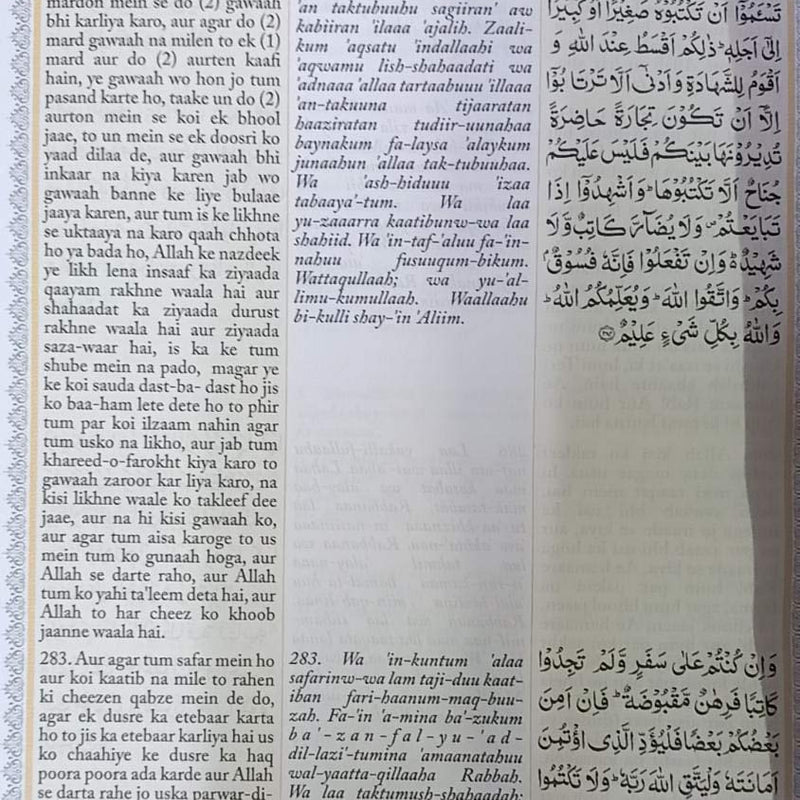 mardon mein se do (2) gawaah
bhi karliya karo, aur agar do (2)
mard gawaah na milen to ek (1)
mard aur do (2) aurten kaafi
hain, ye gawaah wo hon jo tum
pasand karte ho, taake un do (2)
aurton mein se koi ek bhool
jaae, to un mein se ek doosri ko
yaad dilaa de, aur gawaah bhi
inkaar na kiya karen jab wo
gawaah banne ke liye bulaae
jaaya karen, aur tum is ke likhne
se uktaaya na karo qaah chhota
ho ya bada ho, Allah ke nazdeek
ye likh lena insaaf ka ziyaada
qaayam rakhne waala hai aur
shahaadat ka ziyaada durust
rakhne waala hai aur ziyaada
saza-waar hai, is ka ke tum
shube mein na pado, magar ye
ke koi sauda dast-ba- dast ho jis
ko baa-ham lete dete ho to phir
tum par koi ilzaam nahin agar
tum usko na likho, aur jab tum
khareed-o-farokht kiya karo to
gawaah zaroor kar liya karo, na
kisi likhne waale ko takleef dee
jaae, aur na hi kisi gawaah ko,
aur agar tum aisa karoge to us
mein tum ko gunaah hoga, aur
Allah se darte raho, aur Allah
tum ko yahi ta'leem deta hai, aur
Allah to har cheez ko khoob
jaanne waala hai.
283. Aur agar tum safar mein ho
aur koi kaatib na mile to rahen
ki cheezen qabze mein de do,
agar ek dusre ka etebaar karta
ho to jis ka etebaar karliya hai us
ko chaahiye ke dusre ka haq
poora poora ada karde aur Allah
se darta rahe jo uska parwar-di-
'an taktubuuhu sagiiran' aw
kabiiran 'ilaaa 'ajalih. Zaali-
kum 'aqsatu 'indallaahi wa
'aqwamu lish-shahaadati wa
'adnaaa 'allaa tartaabuuu 'illaaa
'an-takuuna tijaaratan
haaziratan tudiir-uunahaa
baynakum fa-laysa 'alaykum
junaahun 'allaa tak-tubuuhaa.
Wa 'ash-hiduuu 'izaa
tabaaya'-tum. Wa laa
yu-zaaarra kaatibunw-wa laa
shahiid. Wa 'in-taf-'aluu fa-'in-
nahuu fusuuqum-bikum.
Wattaqullaah; wa yu-'al-
limu-kumullaah. Waallaahu
bi-kulli shay-'in 'Aliim.
283. Wa 'in-kuntum 'alaa
safarinw-wa lam taji-duu kaat-
iban fari-haanum-maq-buu-
zah. Fa-'in 'a-mina ba'-zukum
ba'-zan-fal-yu-'ad-
dil-lazi'-tumina 'amaanatahuu
wal-yaatta-qillaaha Rabbah.
Wa laa taktumush-shahaadah;
تَسْـَٔمُوْۤا اَنْ تَكْتُبُوْهُ صَغِيْرًا اَوْ كَبِيْرًا
اِلٰۤى اَجَلِهٖ ؕ ذٰلِكُمْ اَقْسَطُ عِنْدَ اللّٰهِ وَ
اَقْوَمُ لِلشَّهَادَةِ وَاَدْنٰۤى اَلَّا تَرْتَابُوْۤا
اِلَّاۤ اَنْ تَكُوْنَ تِجَارَةً حَاضِرَةً
تُدِيْرُوْنَهَا بَيْنَكُمْ فَلَيْسَ عَلَيْكُمْ
جُنَاحٌ اَلَّا تَكْتُبُوْهَا ؕ وَاَشْهِدُوْۤا اِذَا
تَبَايَعْتُمْ ۪ وَلَا يُضَآرَّ كَاتِبٌ وَّلَا
شَهِيْدٌ ؕ وَاِنْ تَفْعَلُوْا فَاِنَّهٗ فُسُوْقٌۢ
بِكُمْ ؕ وَاتَّقُوا اللّٰهَ ؕ وَيُعَلِّمُكُمُ اللّٰهُ ؕ
وَاللّٰهُ بِكُلِّ شَیْءٍ عَلِيْمٌ ۝۲۸۲
وَاِنْ كُنْتُمْ عَلٰى سَفَرٍ وَّلَمْ تَجِدُوْا
كَاتِبًا فَرِهٰنٌ مَّقْبُوْضَةٌ ؕ فَاِنْ اَمِنَ
بَعْضُكُمْ بَعْضًا فَلْيُؤَدِّ الَّذِی اؤْتُمِنَ
اَمَانَتَهٗ وَلْيَتَّقِ اللّٰهَ رَبَّهٗ ؕ وَلَا تَكْتُمُوا